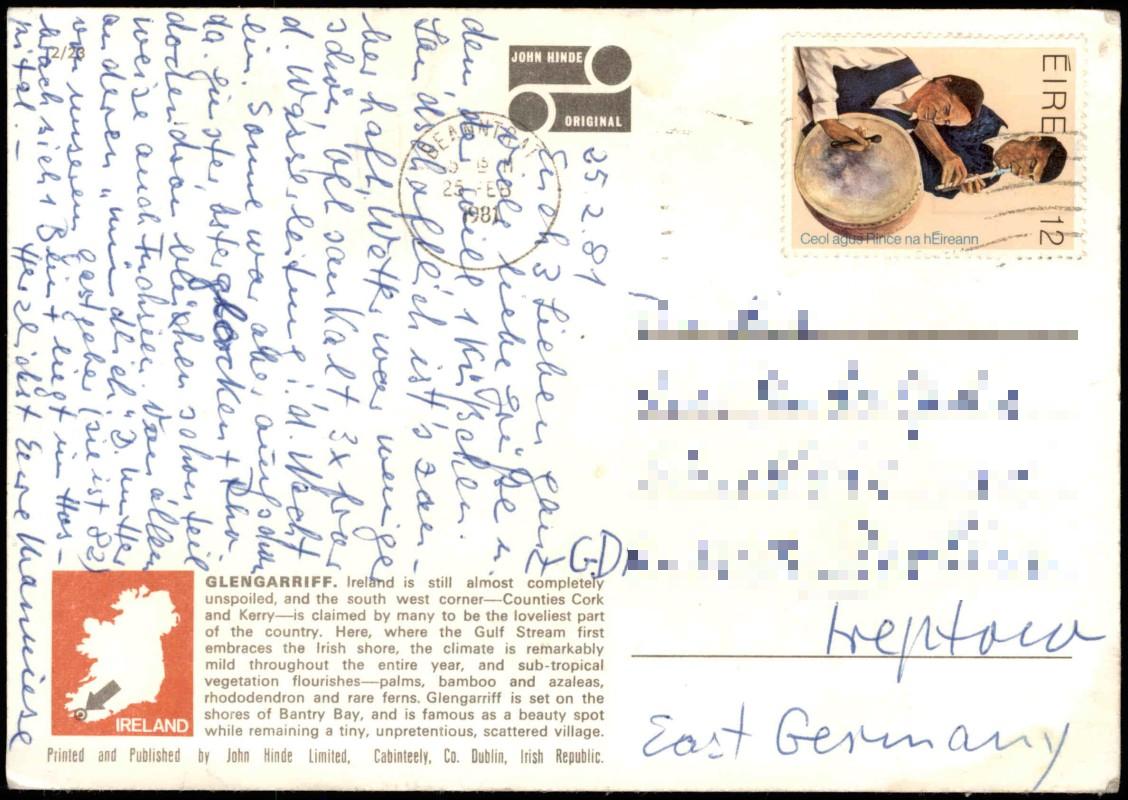 JOHN HINDE
ORIGINAL
ÉIRE
12
Ceol agus Rince na hÉireann
BEANNTRAÍ
25 FEB
1981
2/23
25.2.81
Euch 3 Lieben ganz
viele liebe Grüße u.
dem 1 Küßchen.
Landschaftlich ist's zau-
berhaft, Wetter war wenige
schön, oft saukalt 3x fror
d. Wasserleitung i. d. Nacht
ein. Sonne war aber auch schon
da. Ginster, Osterglocken + Rho-
dodendron blühen schon teil
weise auch Fuchsien. Von allem
anderen "mündlich". D. Mutter
von unseren Gastgeber (sie ist 82)
brach sich 1 Bein + liegt im Hos-
pital. – Herzlichst Eure Hannelese
GLENGARRIFF. Ireland is still almost completely
unspoiled, and the south west corner—Counties Cork
and Kerry—is claimed by many to be the loveliest part
of the country. Here, where the Gulf Stream first
embraces the Irish shore, the climate is remarkably
mild throughout the entire year, and sub-tropical
vegetation flourishes—palms, bamboo and azaleas,
rhododendron and rare ferns. Glengarriff is set on the
shores of Bantry Bay, and is famous as a beauty spot
while remaining a tiny, unpretentious, scattered village.
IRELAND
Printed and Published by John Hinde Limited, Cabinteely, Co. Dublin, Irish Republic.
GD
Treptow
East Germany